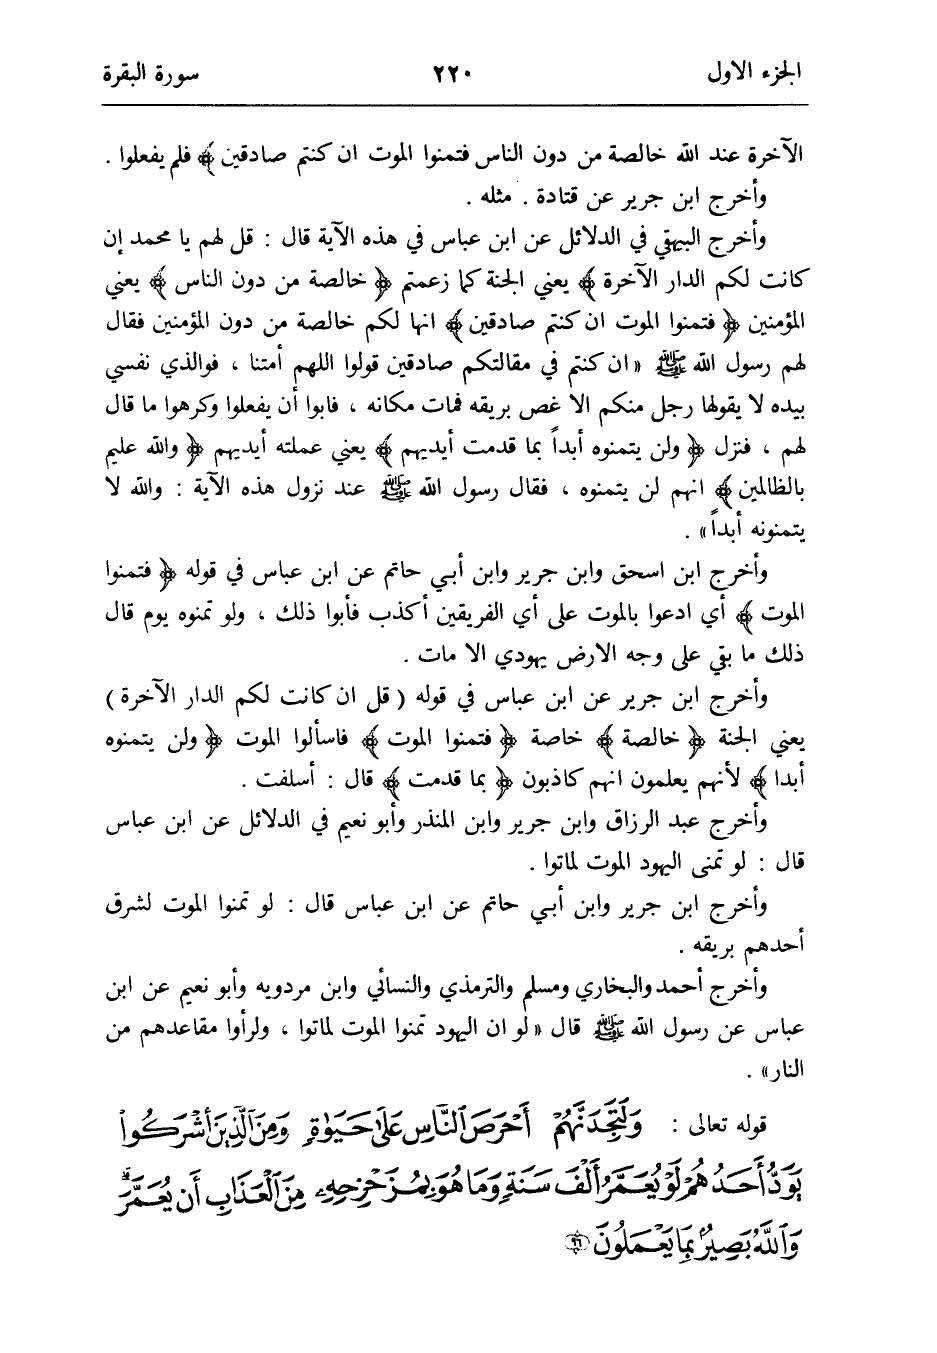 الجزء الاول ٢٢٠ سورة البقرة
الآخرة عند الله خالصة من دون الناس فتمنوا الموت ان كنتم صادقين ﴾ فلم يفعلوا .
وأخرج ابن جرير عن قتادة . مثله .
وأخرج البيهقي في الدلائل عن ابن عباس في هذه الآية قال : قل لهم يا محمد إن
كانت لكم الدار الآخرة ﴾ يعني الجنة كما زعمتم ﴿ خالصة من دون الناس ﴾ يعني
المؤمنين ﴿ فتمنوا الموت ان كنتم صادقين ﴾ انها لكم خالصة من دون المؤمنين فقال
لهم رسول الله ﷺ «ان كنتم في مقالتكم صادقين قولوا اللهم أمتنا ، فوالذي نفسي
بيده لا يقولها رجل منكم الا غص بريقه فمات مكانه ، فابوا أن يفعلوا وكرهوا ما قال
لهم ، فنزل ﴿ ولن يتمنوه أبداً بما قدمت أيديهم ﴾ يعني عملته أيديهم ﴿ والله عليم
بالظالمين ﴾ انهم لن يتمنوه ، فقال رسول الله ﷺ عند نزول هذه الآية : والله لا
يتمنونه أبداً» .
وأخرج ابن اسحق وابن جرير وابن أبي حاتم عن ابن عباس في قوله ﴿ فتمنوا
الموت ﴾ أي ادعوا بالموت على أي الفريقين أكذب فأبوا ذلك ، ولو تمنوه يوم قال
ذلك ما بقي على وجه الارض يهودي الا مات .
وأخرج ابن جرير عن ابن عباس في قوله ( قل ان كانت لكم الدار الآخرة )
يعني الجنة ﴿ خالصة ﴾ خاصة ﴿ فتمنوا الموت ﴾ فاسألوا الموت ﴿ ولن يتمنوه
أبدا ﴾ لأنهم يعلمون انهم كاذبون ﴿ بما قدمت ﴾ قال : أسلفت .
وأخرج عبد الرزاق وابن جرير وابن المنذر وأبو نعيم في الدلائل عن ابن عباس
قال : لو تمنى اليهود الموت لماتوا .
وأخرج ابن جرير وابن أبي حاتم عن ابن عباس قال : لو تمنوا الموت لشرق
أحدهم بريقه .
وأخرج أحمد والبخاري ومسلم والترمذي والنسائي وابن مردويه وأبو نعيم عن ابن
عباس عن رسول الله ﷺ قال «لو ان اليهود تمنوا الموت لماتوا ، ولرأوا مقاعدهم من
النار» .
قوله تعالى : وَلَتَجِدَنَّهُمْ أَحْرَصَ ٱلنَّاسِ عَلَىٰ حَيَوٰةٍ وَمِنَ ٱلَّذِينَ أَشْرَكُوا۟
يَوَدُّ أَحَدُهُمْ لَوْ يُعَمَّرُ أَلْفَ سَنَةٍ وَمَا هُوَ بِمُزَحْزِحِهِۦ مِنَ ٱلْعَذَابِ أَن يُعَمَّرَ ۗ
وَٱللَّهُ بَصِيرٌۢ بِمَا يَعْمَلُونَ ٩٦